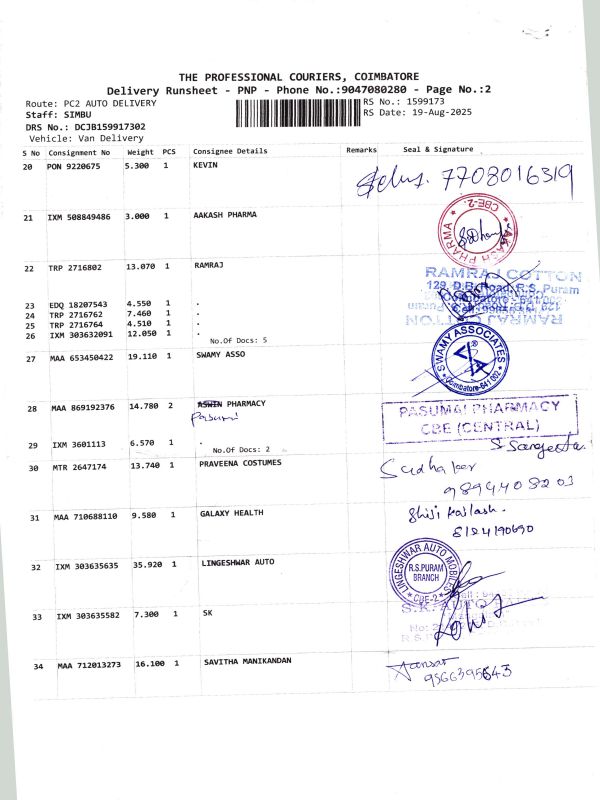 THE PROFESSIONAL COURIERS, COIMBATORE
Delivery Runsheet - PNP - Phone No.:9047080280 - Page No.:2
Route: PC2 AUTO DELIVERY RS No.: 1599173
Staff: SIMBU RS Date: 19-Aug-2025
DRS No.: DCJB159917302
Vehicle: Van Delivery
S No Consignment No Weight PCS Consignee Details Remarks Seal & Signature
20 PON 9220675 5.300 1 KEVIN 7708016319
21 IXM 508849486 3.000 1 AAKASH PHARMA
AAKASH PHARMA CBE-2.
22 TRP 2716802 13.070 1 RAMRAJ
RAMRAJ COTTON
129, D.B. Road, R.S. Puram
Coimbatore - 641 002
23 EDQ 18207543 4.550 1 .
24 TRP 2716762 7.460 1 .
25 TRP 2716764 4.510 1 .
26 IXM 303632091 12.050 1 .
No.Of Docs: 5
RAMRAJ COTTON
27 MAA 653450422 19.110 1 SWAMY ASSO
SWAMY ASSOCIATES Coimbatore-641 002
28 MAA 869192376 14.780 2 ASWIN PHARMACY
Pasumi
PASUMAI PHARMACY
CBE (CENTRAL)
29 IXM 3601113 6.570 1 .
No.Of Docs: 2
S Sangeetha.
30 MTR 2647174 13.740 1 PRAVEENA COSTUMES
Sudhaker
9894408203
31 MAA 710688110 9.580 1 GALAXY HEALTH
Shiji Kailash.
8124190690
32 IXM 303635635 35.920 1 LINGESHWAR AUTO
LINGESHWAR AUTO MOBILES
R.S.PURAM
BRANCH
CBE-2
33 IXM 303635582 7.300 1 SK
S.K. AUTO
34 MAA 712013273 16.100 1 SAVITHA MANIKANDAN
9566395643